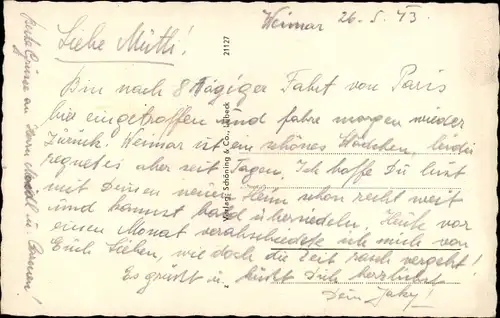 Weimar 26.5.43.
Liebe Mutti!
Bin nach 8 tägiger Fahrt von Paris
hier eingetroffen und fahre morgen wieder
zurück. Weimar ist ein schönes Städtchen, leider
regnet es aber seit Tagen. Ich hoffe Du bist
mit Deinem neuen Heim schon recht weit
und kannst bald übersiedeln. Heute vor
einem Monat verabschiedete ich mich von
Euch Lieben, wie doch die Zeit rasch vergeht!
Es grüßt u. küsst Dich herzlichst
Dein
Beste Grüsse an Herrn u.
21127
Verlag: Schöning & Co., Lübeck